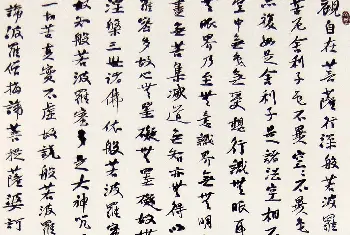 觀自在菩薩行深般若波羅
苦厄舍利子色不異空空不異色
亦復如是舍利子是諸法空相不
空中無色無受想行識無眼耳
無眼界乃至無意識界無無明
盡無苦集滅道無智亦無得以
羅蜜多故心無罣礙無罣礙故無
涅槃三世諸佛依般若波羅蜜
故知般若波羅蜜多是大神咒
一切苦真實不虛故說般若波羅
諦波羅僧揭諦菩提薩婆訶